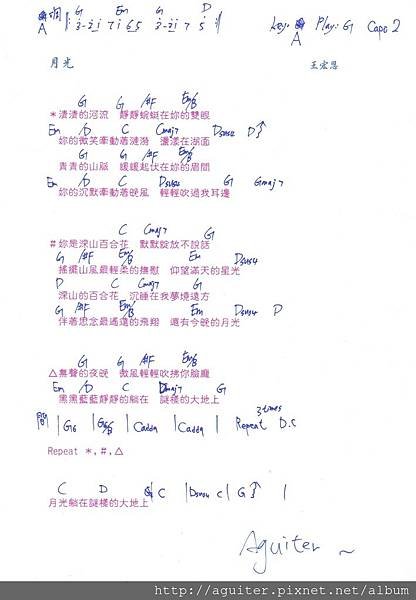 調 G Em G D Key: Play: G Capo 2
A |: 3-2i 7 i 6 5 3-2i 7 5 :| A
月光 王宏恩
G G /#F Em/B
*清清的河流 靜靜蜿蜒在妳的雙眼
Em /D C Cmaj7 Dsus4 D
妳的微笑牽動著漣漪 盪漾在湖面
G G /#F Em/B
青青的山脈 緩緩起伏在妳的眉間
Em /D C Dsus4 G Gmaj7
妳的沉默牽動著晚風 輕輕吹過我耳邊
C Cmaj7 G
#妳是深山百合花 默默綻放不說話
G /#F Em/B Em Dsus4
搖擺山風最輕柔的撫慰 仰望滿天的星光
D C Cmaj7 G
深山的百合花 沉睡在我夢境遠方
G /#F Em/B Em Dsus4 D
伴著思念最遙遠的飛翔 還有今晚的月光
G G /#F Em/B
△無聲的夜晚 微風輕輕吹拂你臉龐
Em /D C Dmaj7 G
黑黑藍藍靜靜的躺在 謎樣的大地上
3 times
間 |G6 |G6/B |Cadd9 |Cadd9 | Repeat D.C
Repeat *,#,△
C D G|C |Dsus4 C|G |
月光躺在謎樣的大地上
Aguiter ~
http://aguiter.pixnet.net/album